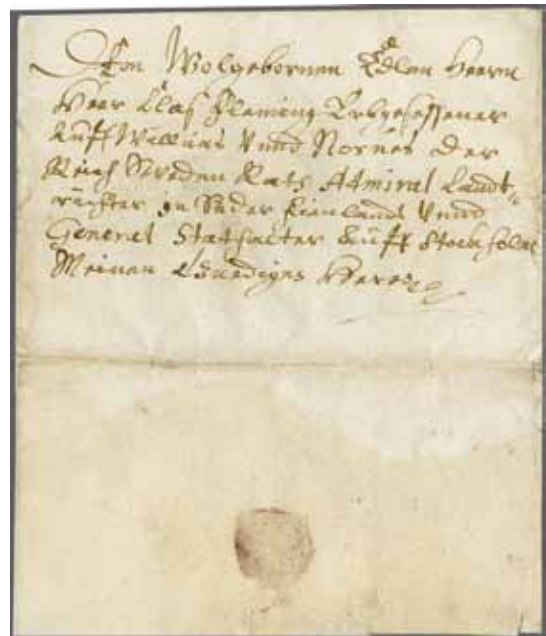 Den Wolgebornen Edlen Herrn
Herr Claß Fleming Erbgesessener
Auff Willnäs Vnnd Nornes Der
Reich Sweden Rats Admiral Landt-
richter in Suder Finlandt Vnnd
General Stathalter Auff Stockholm
Meinen Herrn